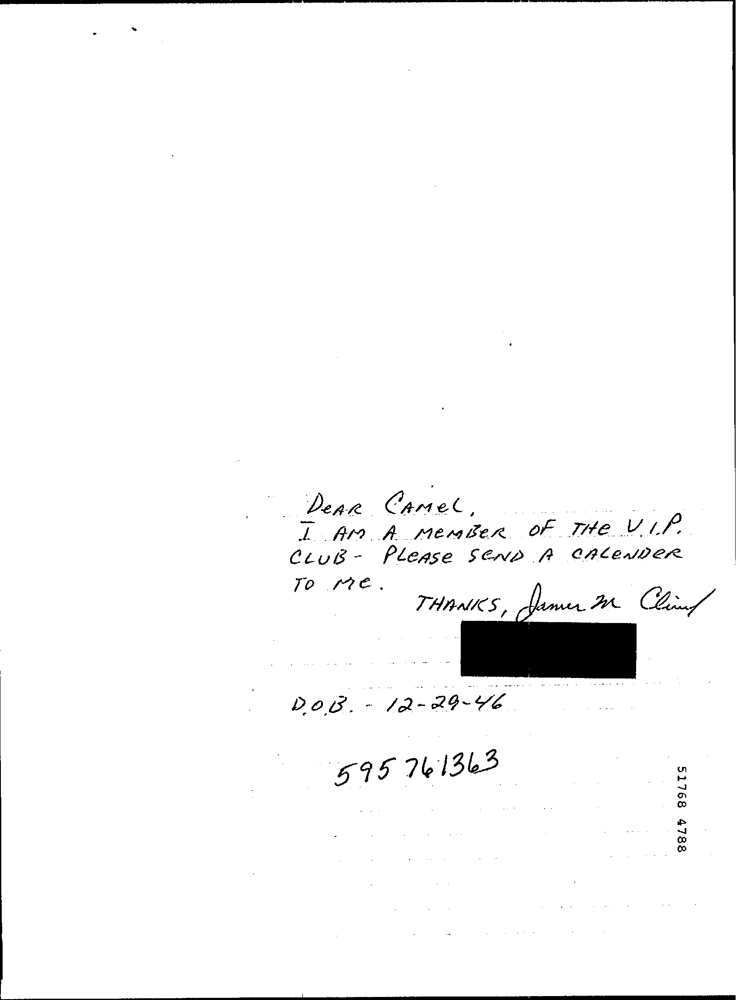 DEAR CAMEL,
I AM A MEMBER OF THE V.I.P.
CLUB - PLEASE SEND A CALENDER
TO ME.
THANKS, James M
D.O.B. - 12-29-46
595761363
51768 4788